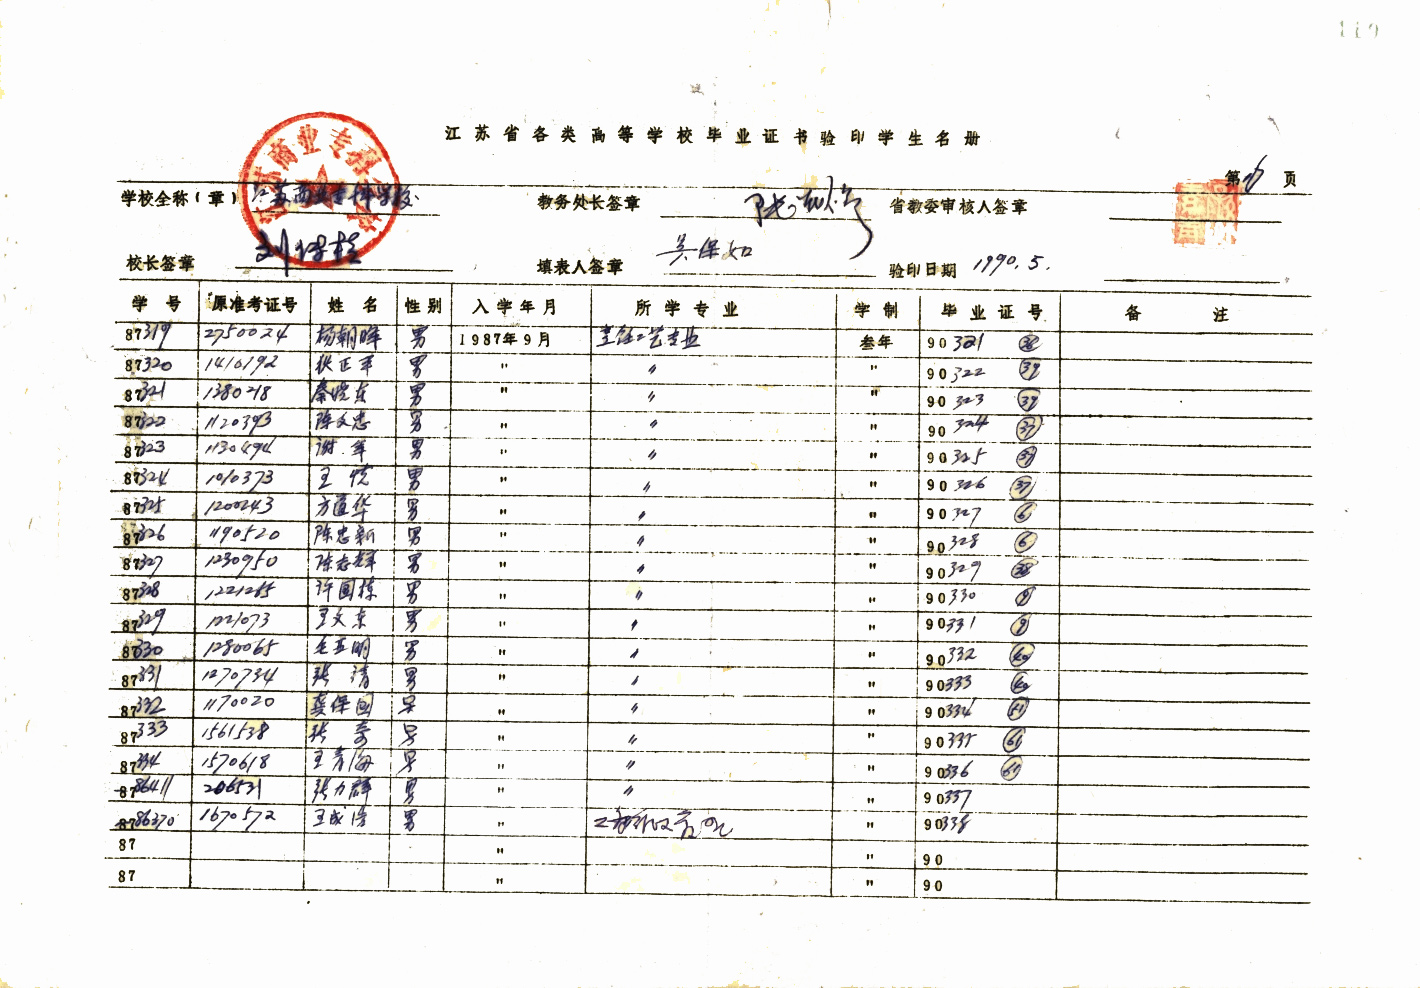 110
江苏省各类高等学校毕业证书验印学生名册
第 页
学校全称(章) 江苏商业专科学校 教务处长签章 省教委审核人签章
校长签章 填表人签章 吴保如 验印日期 1990.5.
学号 原准考证号 姓名 性别 入学年月 所学专业 学制 毕业证号 备注
87319 2750024 杨朝晖 男 1987年9月 烹饪工艺专业 叁年 90321 38
87320 1410192 张正军 男 " " " 90322 39
87321 1380218 秦晓东 男 " " " 90323 39
87322 1120393 陈文忠 男 " " " 90324 37
87323 1130494 谢军 男 " " " 90325 37
87324 1010373 王悦 男 " " " 90326 37
87325 1200243 方道华 男 " " " 90327 6
87326 1190520 陈忠新 男 " " " 90328 6
87327 1230950 陈志辉 男 " " " 90329 38
87328 1221265 许国栋 男 " " " 90330 9
87329 1221073 王文东 男 " " " 90331 9
87330 1280065 亚明 男 " " " 90332 40
87331 1270734 张涛 男 " " " 90333 40
87332 1170020 龚保国 男 " " " 90334
87333 1561538 张奇 男 " " " 90335 61
87334 1570618 王青海 男 " " " 90336 61
8786411 206531 张力辉 男 " " " 90337
8786370 1670572 王成 男 " " 90338
87 " " 90
87 " " 90